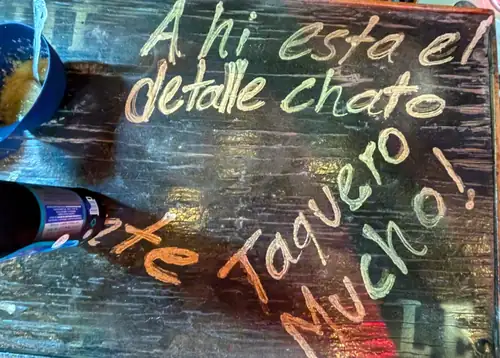 Ahi esta el
detalle chato
te Taquero
Mucho!